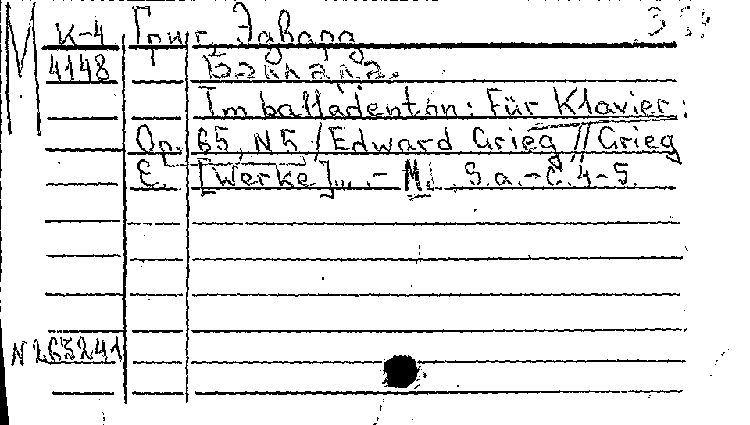 М
К-4 Григ, Эдвард
4148 Баллада.
Im balladenton: Für Klavier:
Op. 65, N5 / Edward Grieg // Grieg
E. [Werke]... .- M., S.a. - С. 4-5.
N 265241